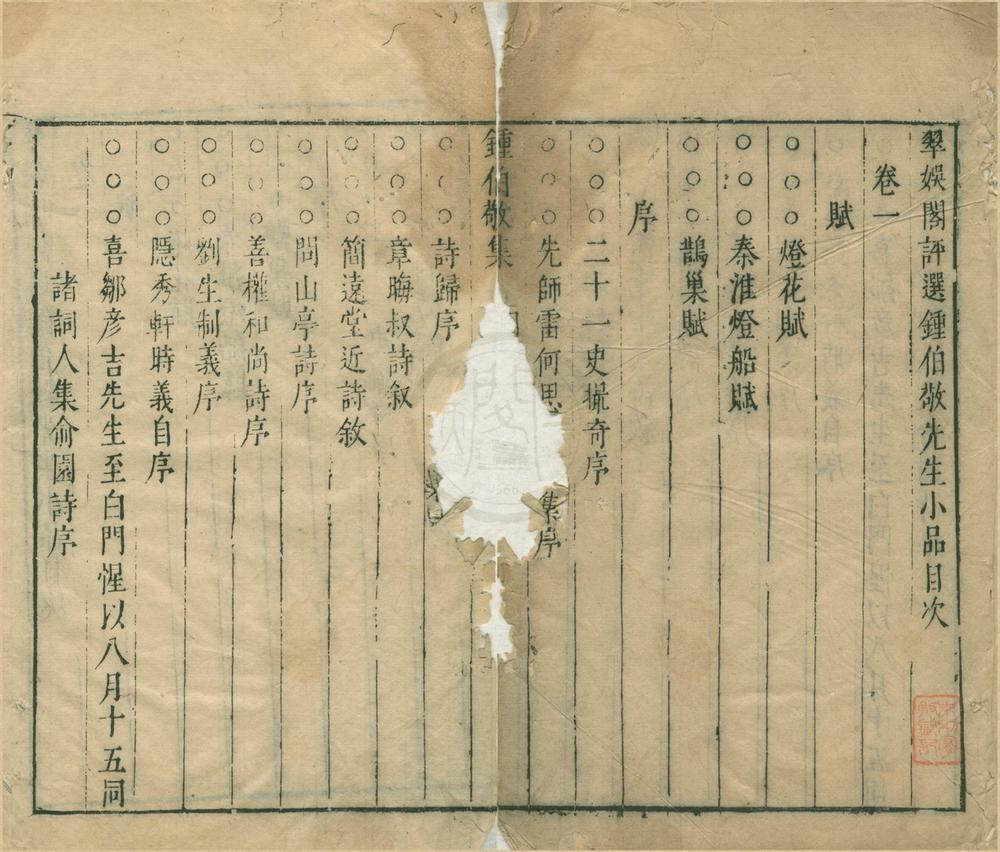 翠娛閣評選鍾伯敬先生小品目次
卷一
賦
○○○燈花賦
○○○秦淮燈船賦
○○○鵲巢賦
序
○○○二十一史撮奇序
○○○先師雷何思 集序
鍾伯敬集
○○○詩歸序
○○○章晦叔詩叙
○○○簡遠堂近詩敘
○○○問山亭詩序
○○○善權和尚詩序
○○○劉生制義序
○○○隱秀軒時義自序
○○○喜鄒彦吉先生至白門惺以八月十五同
諸詞人集俞園詩序